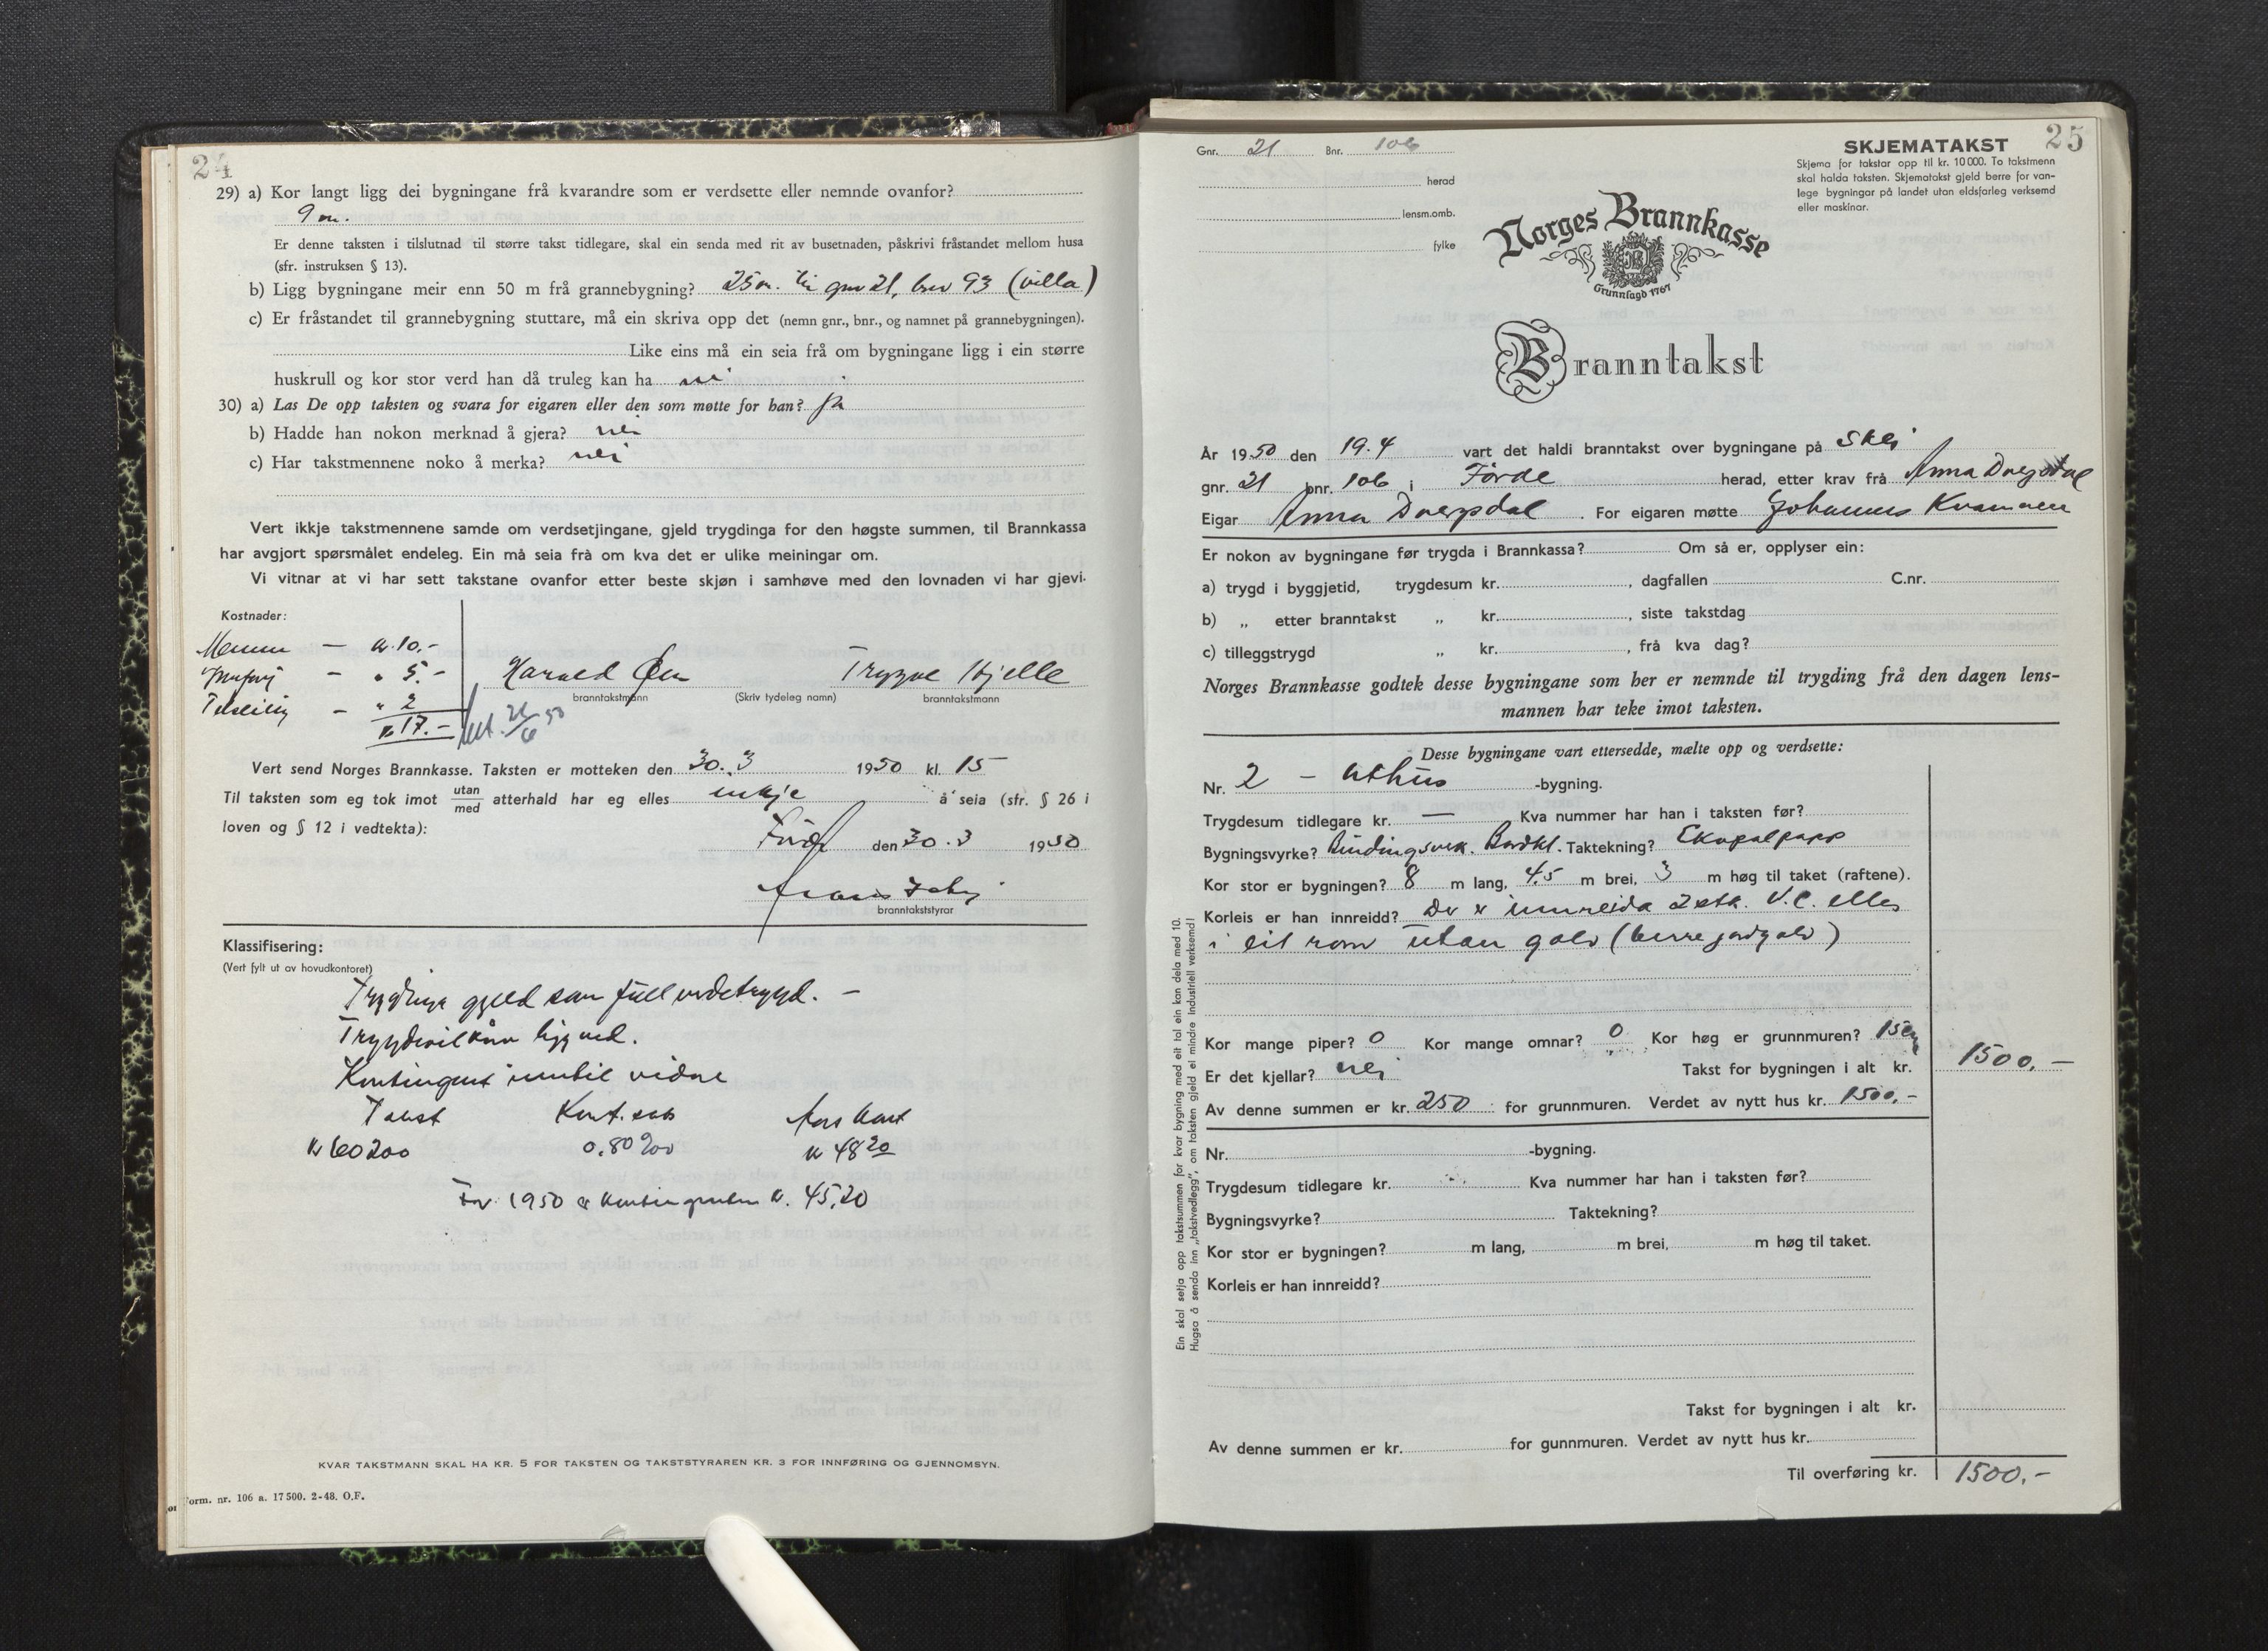 24
29) a) Kor langt ligg dei bygningane frå kvarandre som er verdsette eller nemnde ovanfor?
9 m.
Er denne taksten i tilslutnad til større takst tidlegare, skal ein senda med rit av busetnaden, påskrivi fråstandet mellom husa
(sfr. instruksen § 13).
b) Ligg bygningane meir enn 50 m frå grannebygning? 25 m. til gnr 21, bnr 93 (villa)
c) Er fråstandet til grannebygning stuttare, må ein skriva opp det (nemn gnr., bnr., og namnet på grannebygningen).
Like eins må ein seia frå om bygningane ligg i ein større
huskrull og kor stor verd han då truleg kan ha nei
30) a) Las De opp taksten og svara for eigaren eller den som møtte for han? ja
b) Hadde han nokon merknad å gjera? nei
c) Har takstmennene noko å merka? nei
Vert ikkje takstmennene samde om verdsetjingane, gjeld trygdinga for den høgste summen, til Brannkassa
har avgjort spørsmålet endeleg. Ein må seia frå om kva det er ulike meiningar om.
Vi vitnar at vi har sett takstane ovanfor etter beste skjøn i samhøve med den lovnaden vi har gjevi.
Kostnader:
Mennene — kr. 10.-
— " 5.-
— " 2
kr 17.-
Harald Øen Trygve Hjelle
branntakstmann (Skriv tydeleg namn) branntakstmann
Vert send Norges Brannkasse. Taksten er motteken den 30. 3 1950 kl. 15
Til taksten som eg tok imot utan/med atterhald har eg elles inkje å seia (sfr. § 26 i
loven og § 12 i vedtekta):
Førde den 30. 3 1950
branntakststyrar
Klassifisering:
(Vert fylt ut av hovudkontoret)
Trygdinga gjeld som full verdetrygd. —
Trygdevilkår ligg ved.
Kontingent inntil vidare
Takst Kont. sats Års kont
kr 60200 0.80 ‰ kr 48 20
For 1950 er kontingenten kr. 45.20
KVAR TAKSTMANN SKAL HA KR. 5 FOR TAKSTEN OG TAKSTSTYRAREN KR. 3 FOR INNFØRING OG GJENNOMSYN.
Form. nr. 106 a. 17 500. 2-48. O.F.
25
Gnr. 21 Bnr. 106
herad
lensm.omb.
fylke
SKJEMATAKST
Skjema for takstar opp til kr. 10 000. To takstmenn
skal halda taksten. Skjematakst gjeld berre for van-
lege bygningar på landet utan eldsfarleg verksemd
eller maskinar.
Norges Brannkasse
Grunnlagd 1767
Branntakst
År 1950 den 19. 4 vart det haldi branntakst over bygningane på Skei
gnr. 21 bnr. 106 i Förde herad, etter krav frå Anna Dvergsdal
Eigar Anna Dvergsdal. For eigaren møtte Johannes Kvammen
Er nokon av bygningane før trygda i Brannkassa? Om så er, opplyser ein:
a) trygd i byggjetid, trygdesum kr. , dagfallen C.nr.
b) „ etter branntakst „ kr. , siste takstdag
c) tilleggstrygd „ kr. , frå kva dag?
Norges Brannkasse godtek desse bygningane som her er nemnde til trygding frå den dagen lens-
mannen har teke imot taksten.
Desse bygningane vart ettersedde, mælte opp og verdsette:
Nr. 2 – uthus -bygning.
Trygdesum tidlegare kr. — Kva nummer har han i taksten før?
Bygningsvyrke? Bindingsverk. Bordkl. Taktekning? Ekopalpapp
Kor stor er bygningen? 8 m lang, 4.5 m brei, 3 m høg til taket (raftene).
Korleis er han innreidd? Der er innreida 2 stk. V.C. elles
i eit rom utan golv (berre jordgolv)
Kor mange piper? 0 Kor mange omnar? 0 Kor høg er grunnmuren? 15 cm
Er det kjellar? nei Takst for bygningen i alt kr. 1500.—
Av denne summen er kr. 250 for grunnmuren. Verdet av nytt hus kr. 1500.-
Nr. -bygning.
Trygdesum tidlegare kr. Kva nummer har han i taksten før?
Bygningsvyrke? Taktekning?
Kor stor er bygningen? m lang, m brei, m høg til taket.
Korleis er han innreidd?
Takst for bygningen i alt kr.
Av denne summen er kr. for gunnmuren. Verdet av nytt hus kr.
Til overføring kr. 1500.-
Ein skal setja opp takstsummen for kvar bygning med eit tal ein kan dela med 10.
Hugsa å senda inn „takstvedlegg", om taksten gjeld ei mindre industriell verksemd!